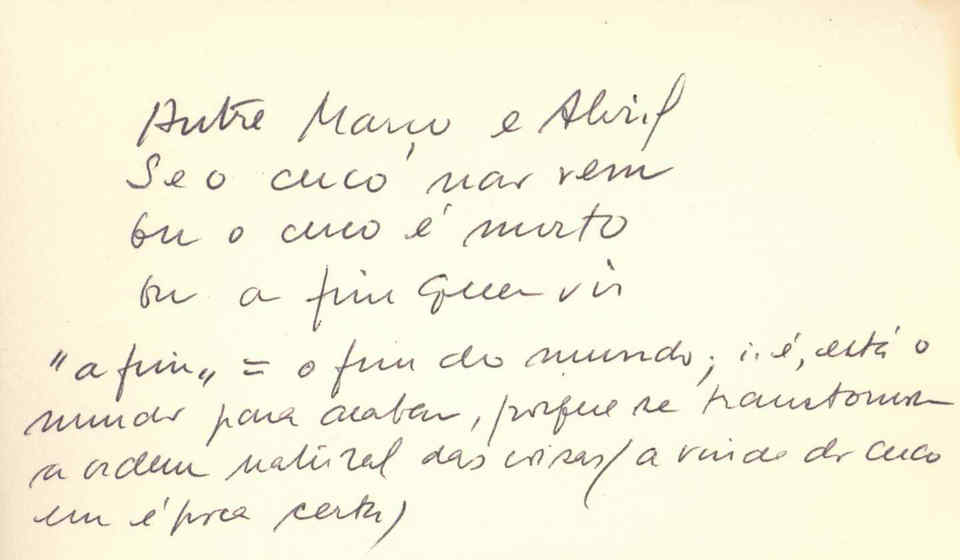 Antre Março e Abril
Se o cuco não vem
ou o cuco é morto
ou a fim quer vir
"a fim" = o fim do mundo; i. é, está o
mundo para acabar, porque se transtornou
a ordem natural das coisas (a vinda do cuco
em época certa)